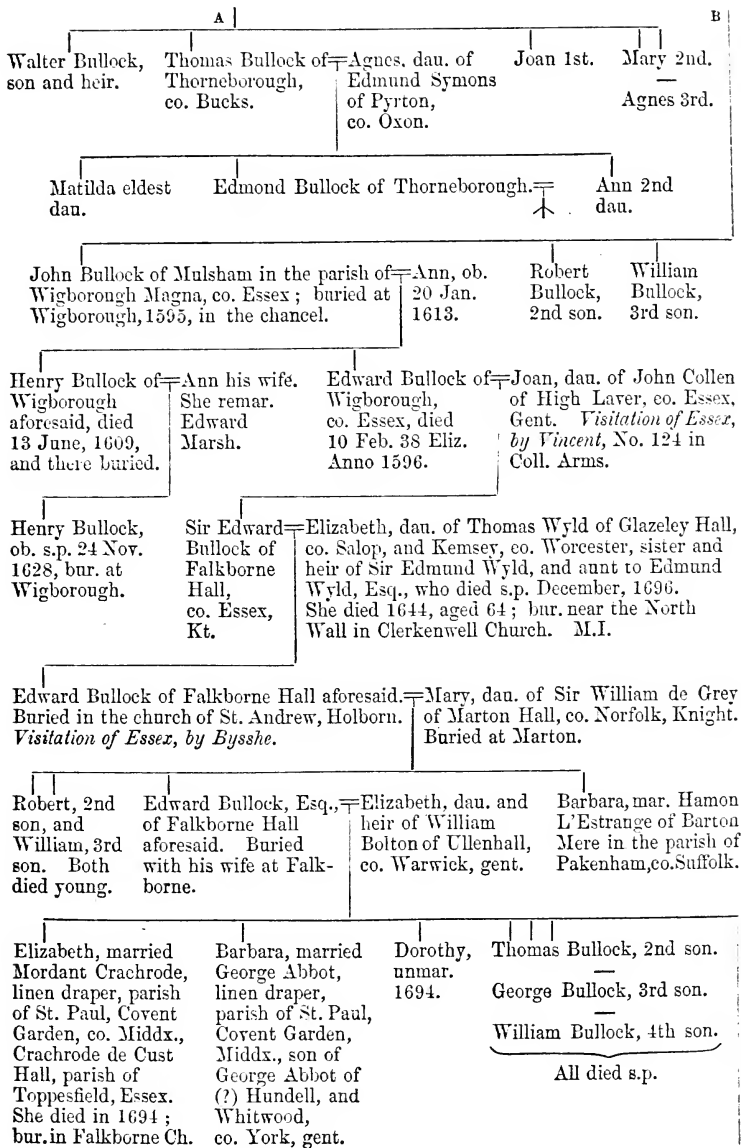 A B
Walter Bullock,
son and heir.
Thomas Bullock of
Thorneborough,
co. Bucks.
Agnes, dau. of
Edmund Symons
of Pyrton,
co. Oxon.
Joan 1st.
Mary 2nd.
—
Agnes 3rd.
Matilda eldest
dau.
Edmond Bullock of Thorneborough.
Ann 2nd
dau.
John Bullock of Mulsham in the parish of
Wigborough Magna, co. Essex ; buried at
Wigborough, 1595, in the chancel.
Ann, ob.
20 Jan.
1613.
Robert
Bullock,
2nd son.
William
Bullock,
3rd son.
Henry Bullock of
Wigborough
aforesaid, died
13 June, 1609,
and there buried.
Ann his wife.
She remar.
Edward
Marsh.
Edward Bullock of
Wigborough,
co. Essex, died
10 Feb. 38 Eliz.
Anno 1596.
Joan, dau. of John Collen
of High Laver, co. Essex,
Gent. Visitation of Essex,
by Vincent, No. 124 in
Coll. Arms.
Henry Bullock,
ob. s.p. 24 Nov.
1628, bur. at
Wigborough.
Sir Edward
Bullock of
Falkborne
Hall,
co. Essex,
Kt.
Elizabeth, dau. of Thomas Wyld of Glazeley Hall,
co. Salop, and Kemsey, co. Worcester, sister and
heir of Sir Edmund Wyld, and aunt to Edmund
Wyld, Esq., who died s.p. December, 1696.
She died 1644, aged 64 ; bur. near the North
Wall in Clerkenwell Church. M.I.
Edward Bullock of Falkborne Hall aforesaid.
Buried in the church of St. Andrew, Holborn.
Visitation of Essex, by Bysshe.
Mary, dau. of Sir William de Grey
of Marton Hall, co. Norfolk, Knight.
Buried at Marton.
Robert, 2nd
son, and
William, 3rd
son. Both
died young.
Edward Bullock, Esq.,
of Falkborne Hall
aforesaid. Buried
with his wife at Falk-
borne.
Elizabeth, dau. and
heir of William
Bolton of Ullenhall,
co. Warwick, gent.
Barbara, mar. Hamon
L'Estrange of Barton
Mere in the parish of
Pakenham, co. Suffolk.
Elizabeth, married
Mordant Crachrode,
linen draper, parish
of St. Paul, Covent
Garden, co. Middx.,
Crachrode de Cust
Hall, parish of
Toppesfield, Essex.
She died in 1694 ;
bur. in Falkborne Ch.
Barbara, married
George Abbot,
linen draper,
parish of St. Paul,
Covent Garden,
Middx., son of
George Abbot of
(?) Hundell, and
Whitwood,
co. York, gent.
Dorothy,
unmar.
1694.
Thomas Bullock, 2nd son.
—
George Bullock, 3rd son.
—
William Bullock, 4th son.
All died s.p.